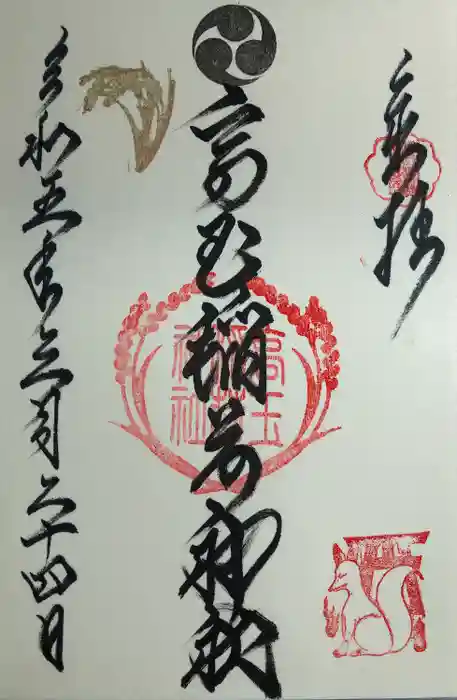 奉拝
高玉稲荷神社
高玉稲荷神社
令和五年三月二十四日